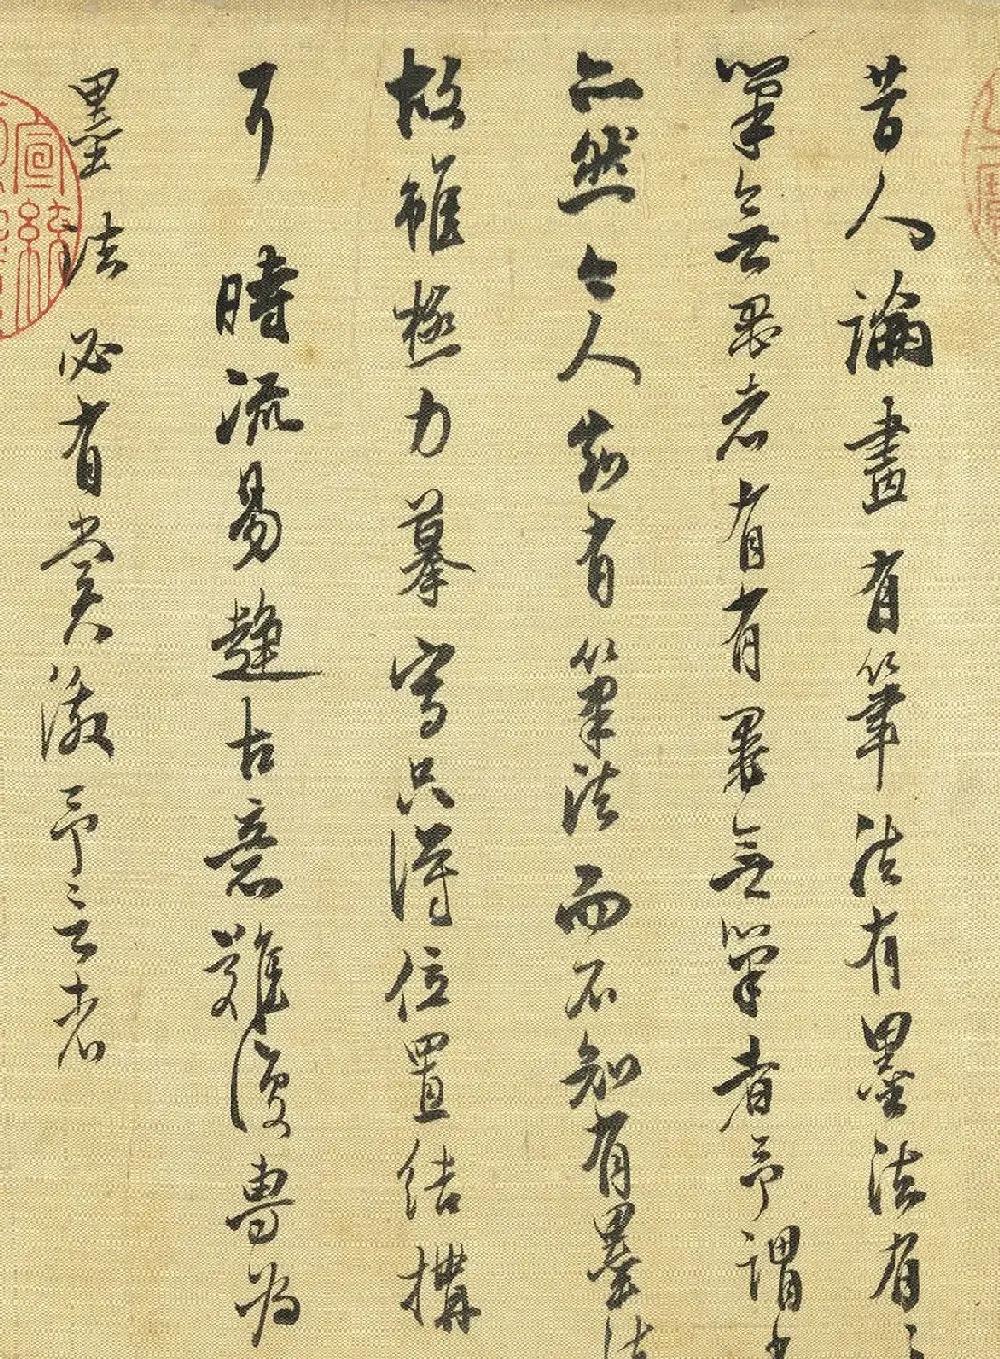 昔人論畫有筆法有墨法有
筆無墨者有有墨無筆者予謂
亦然今人知有筆法而不知有墨法
故雖極力摹寫只得位置結構
耳時流易趨古意難復專為
墨法必有賞激予言者
宣統